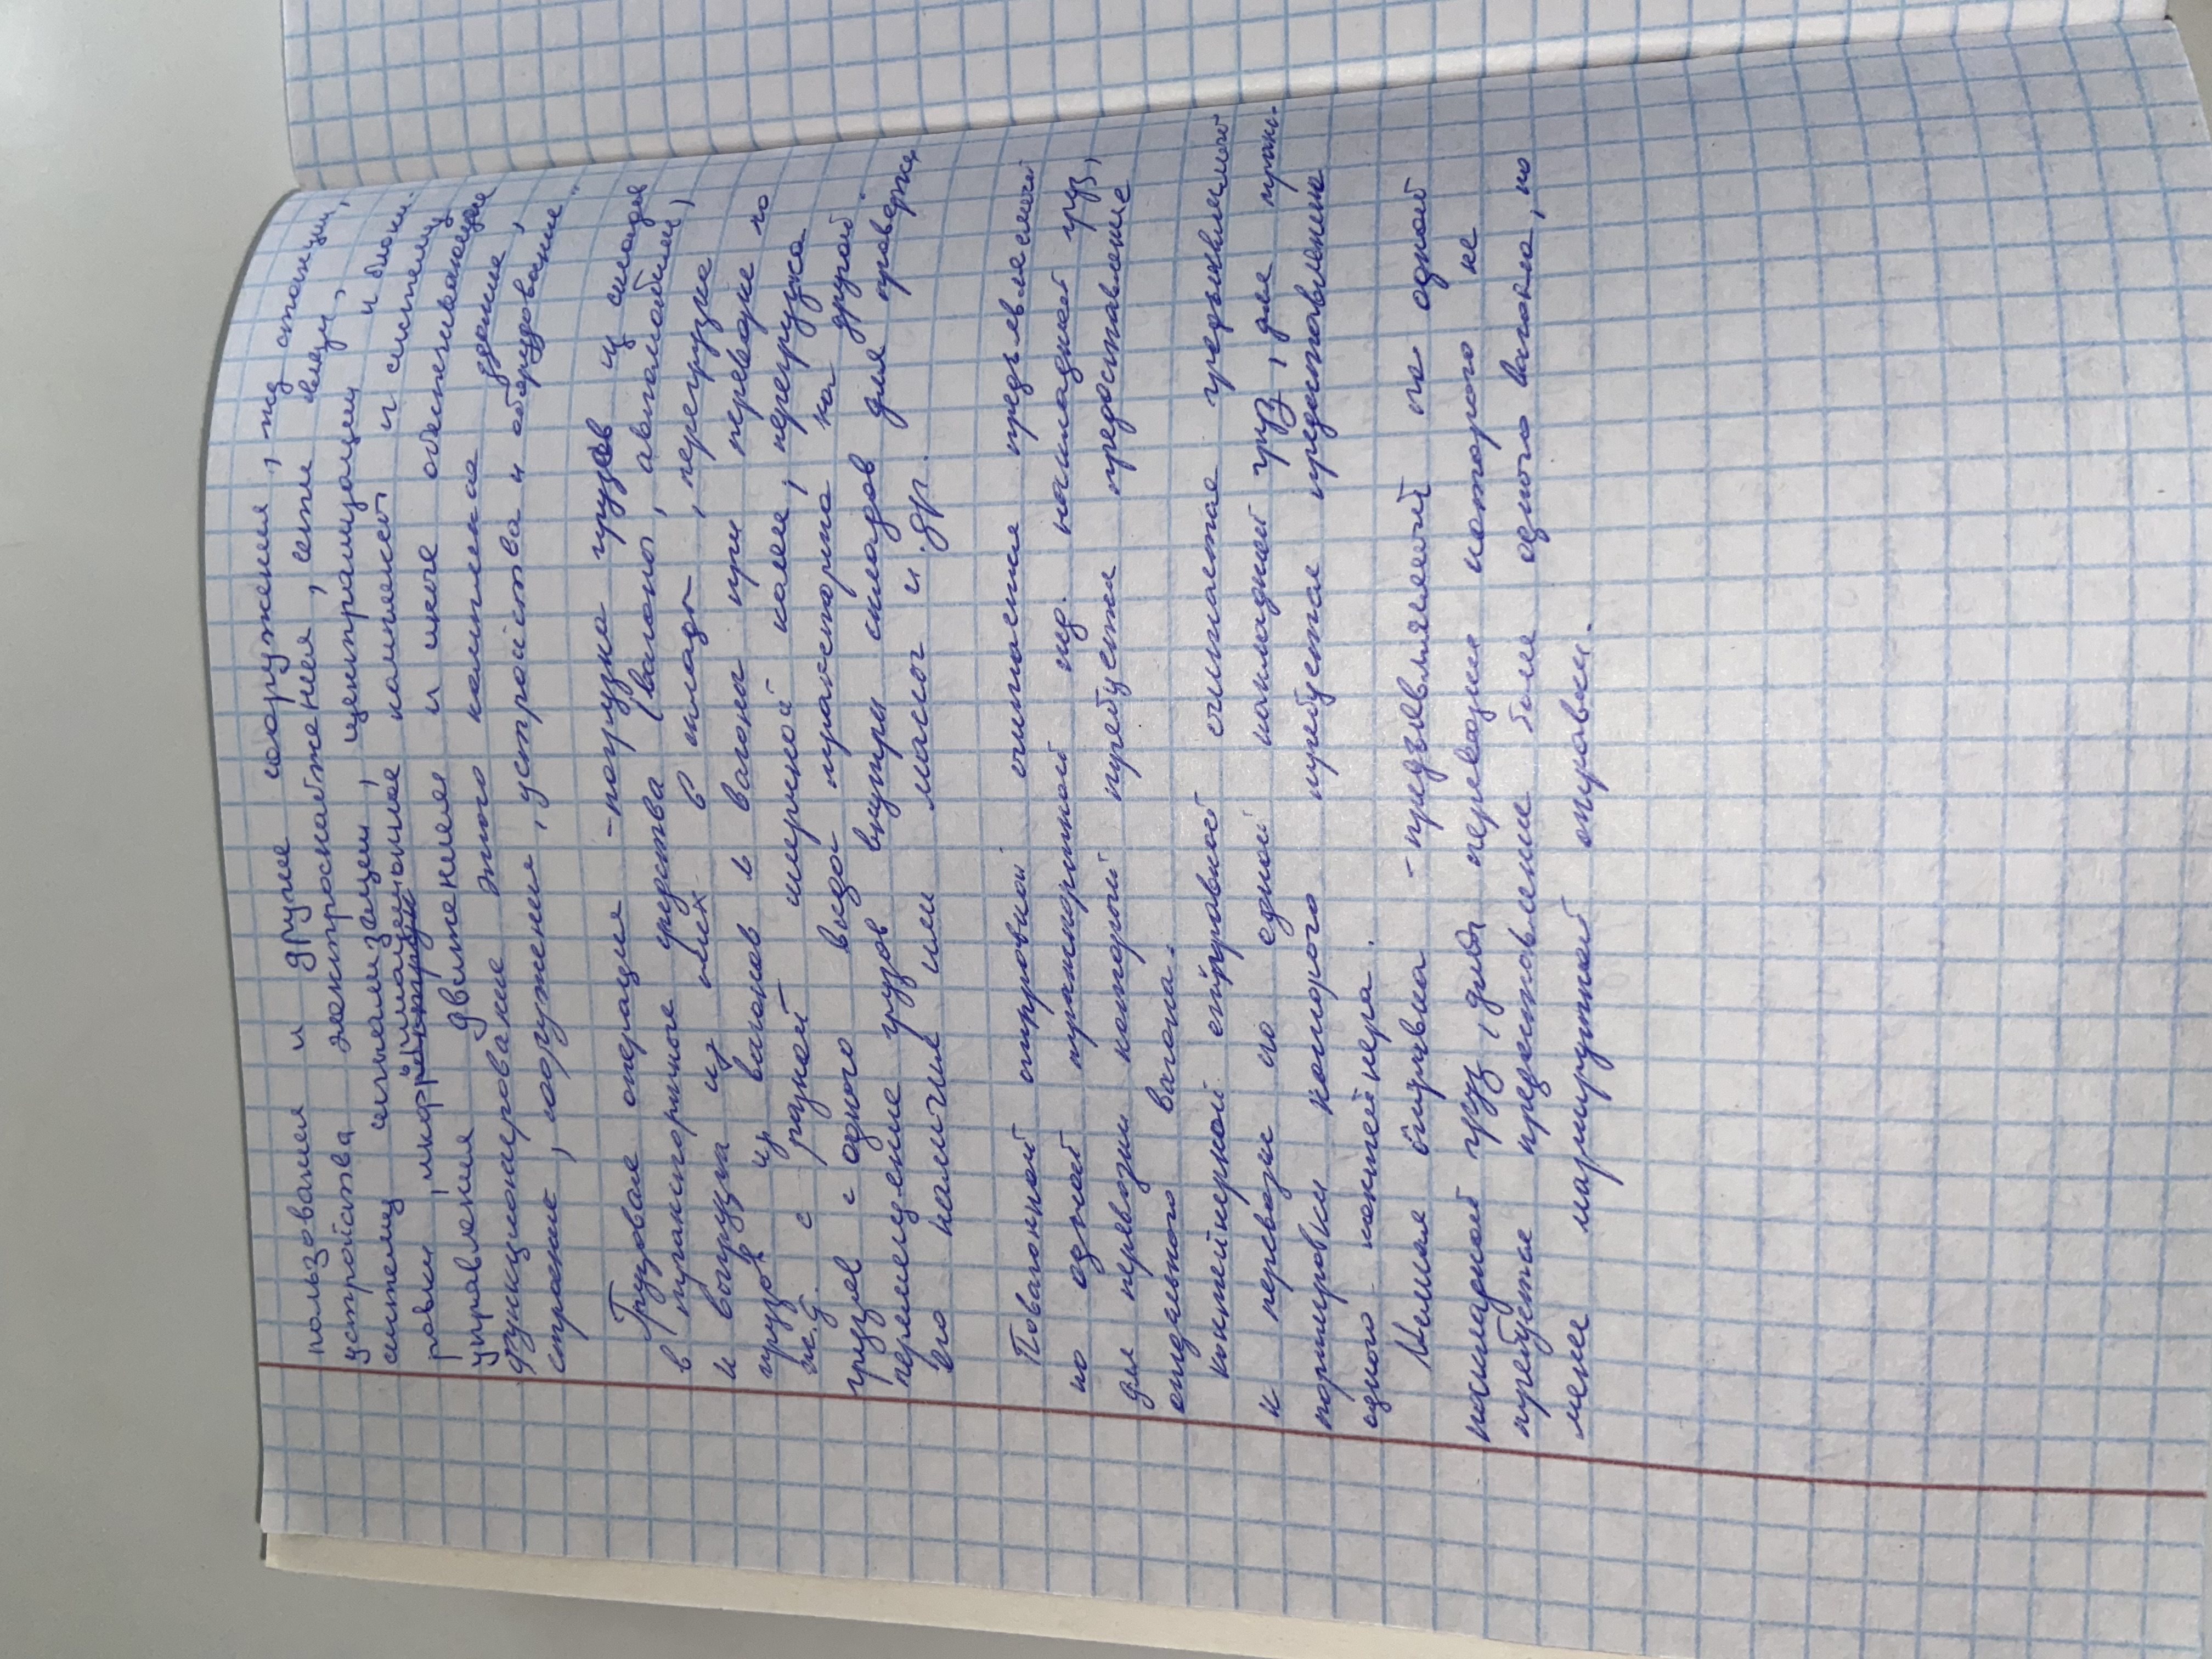 пользования и другие сооружения, жд станции,
устройства электроснабжения, сети связи,
системы сигнализации, централизации и блоки-
ровки, информационные комплексы и систему
управления движением и иные обеспечивающие
функционирование этого комплекса здание,
строение, сооружения, устройства и оборудование".
Грузовые операции - погрузка грузов из склада
в транспортные средства (вагоны, автомобили),
и выгрузка из них в склады, перегрузка
грузов из вагонов в вагоны при перевозке по
ж.д. с разной шириной колеи, перегрузка
грузов с одного вида транспорта на другой.
перемещение грузов внутри складов для проверки
его наличия или массы и др.
Повагонной отправкой считается предъявляемый
по одной транспортной жд. накладной груз,
для перевозки которой требуется предоставление
отдельного вагона.
контейнерной отправкой считается предъявляемый
к перевозке по одной накладной груз, для транс-
портировки которого требуется предоставление
одного контейнера.
отправка - предъявляемый по одной
накладной груз, для перевозки которого не
требуется предоставление более одного вагона, но
менее маршрутной отправки.